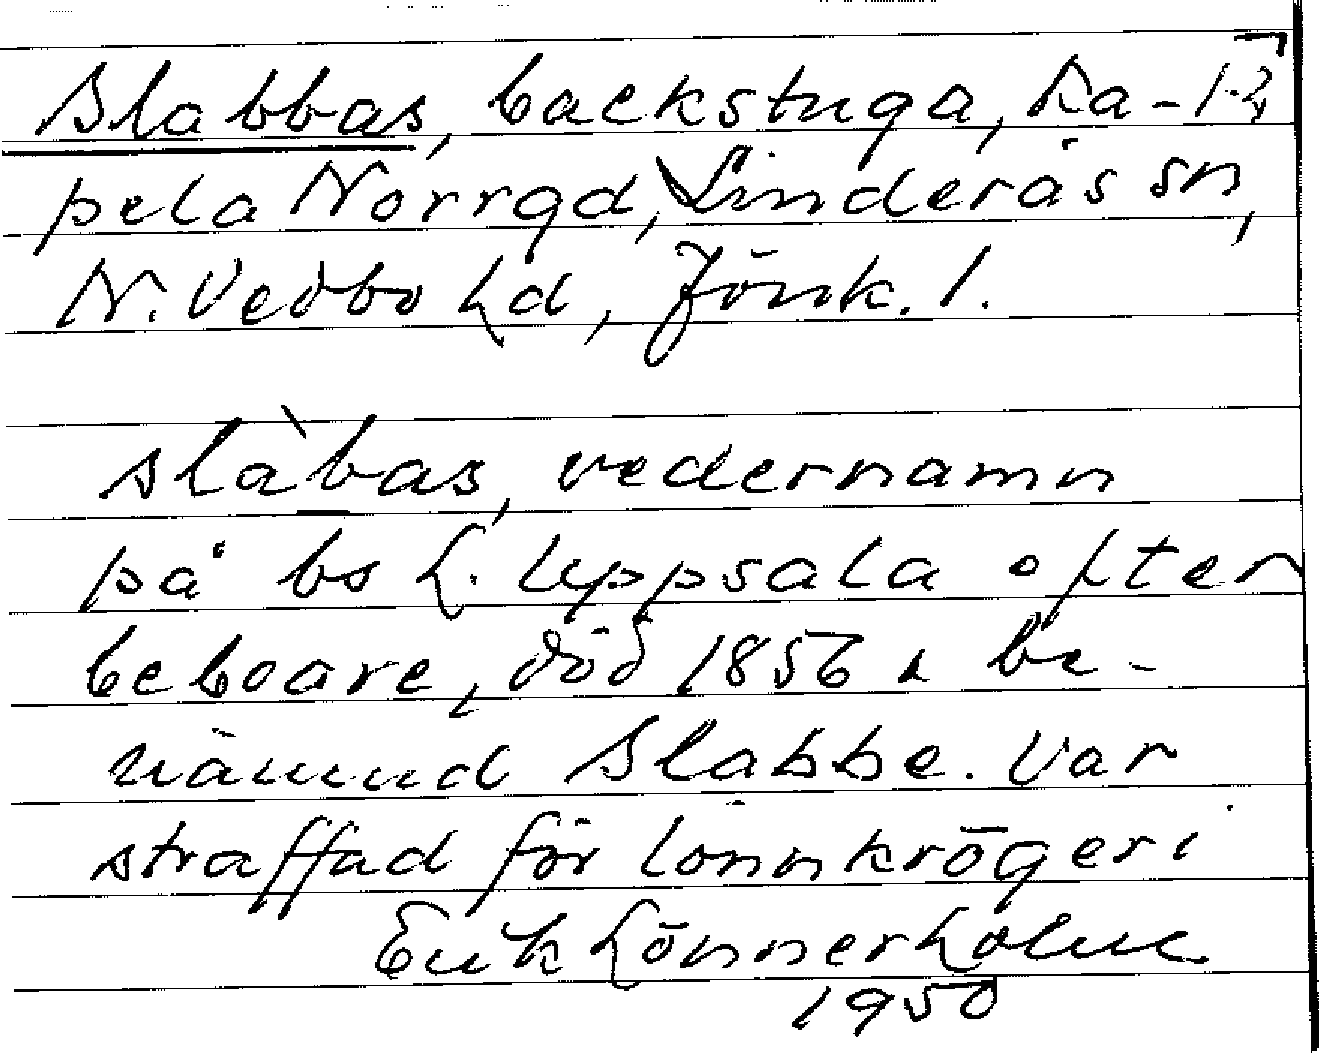 Slabbas, backstuga, Ra-
pela Norrgd, Linderås sn,
N. Vedbo hd, Jönk. l.
slàbas, vedernamn
på bs L. Uppsala efter
beboare, död 1856 o be-
nämnd Slabbe. Var
straffad för lönnkrögeri
Erik Lönnerholm
1950